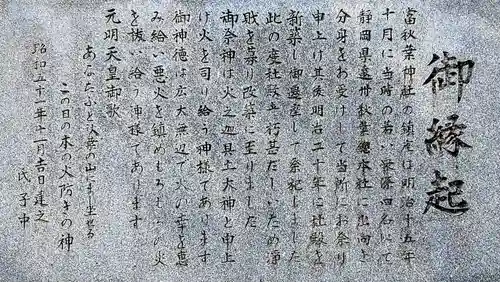 御縁起
當秋葉神社の鎮座は明治十五年
十月に当時の若い衆四名にて
静岡県遠州秋葉総本社に出向き
分身をお受けして当所にお祭り
申上げ其後明治二十年に社殿を
新築し御遷座して祭祀しました
此の度社殿老朽甚だしいため浄
財を募り改築に至りました
御祭神は火之迦具土大神と申上
げ火を司り給う神様であります
御神徳は広大無辺で人の幸を恵
み給い悪火を鎮めもろもろの火
を護り給う神様であります
元明天皇御歌
あなたふと秋葉の山にまし坐せる
この日の本の火防ぎの神
昭和五十一年十一月吉日建之
氏子中